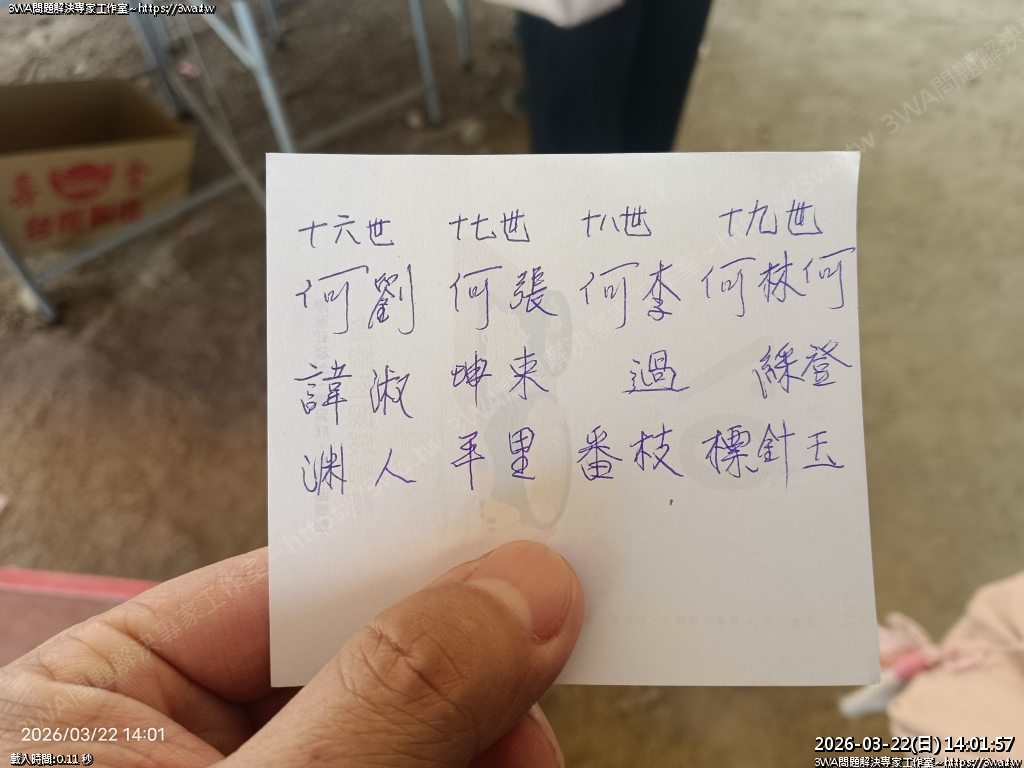 3WA問題解決專家工作室~https://3wa.tw
十六世 十七世 十八世 十九世
何劉 何張 何李 何林何
諱淑 坤束 過 綵登
渊人 平里 番枝 標針玉
2026/03/22 14:01
載入時間:0.11 秒
2026-03-22(日) 14:01:57
3WA問題解決專家工作室~https://3wa.tw